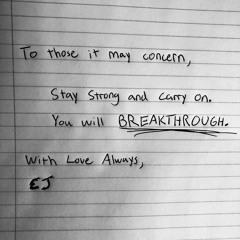 To those it may concern,
Stay Strong and carry on.
You will BREAKTHROUGH.
With Love Always,
EJ